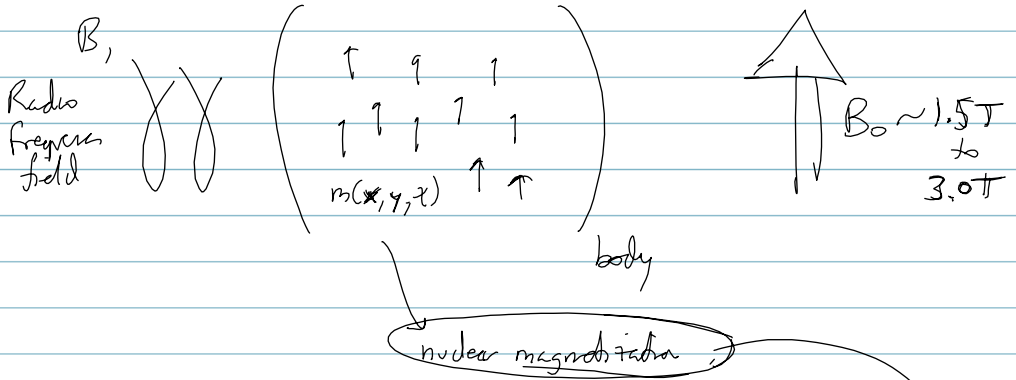 B₁
Radio
frequency
field
m(x, y, z)
B₀ ~ 1.5T
to
3.0T
body
nuclear magnetization